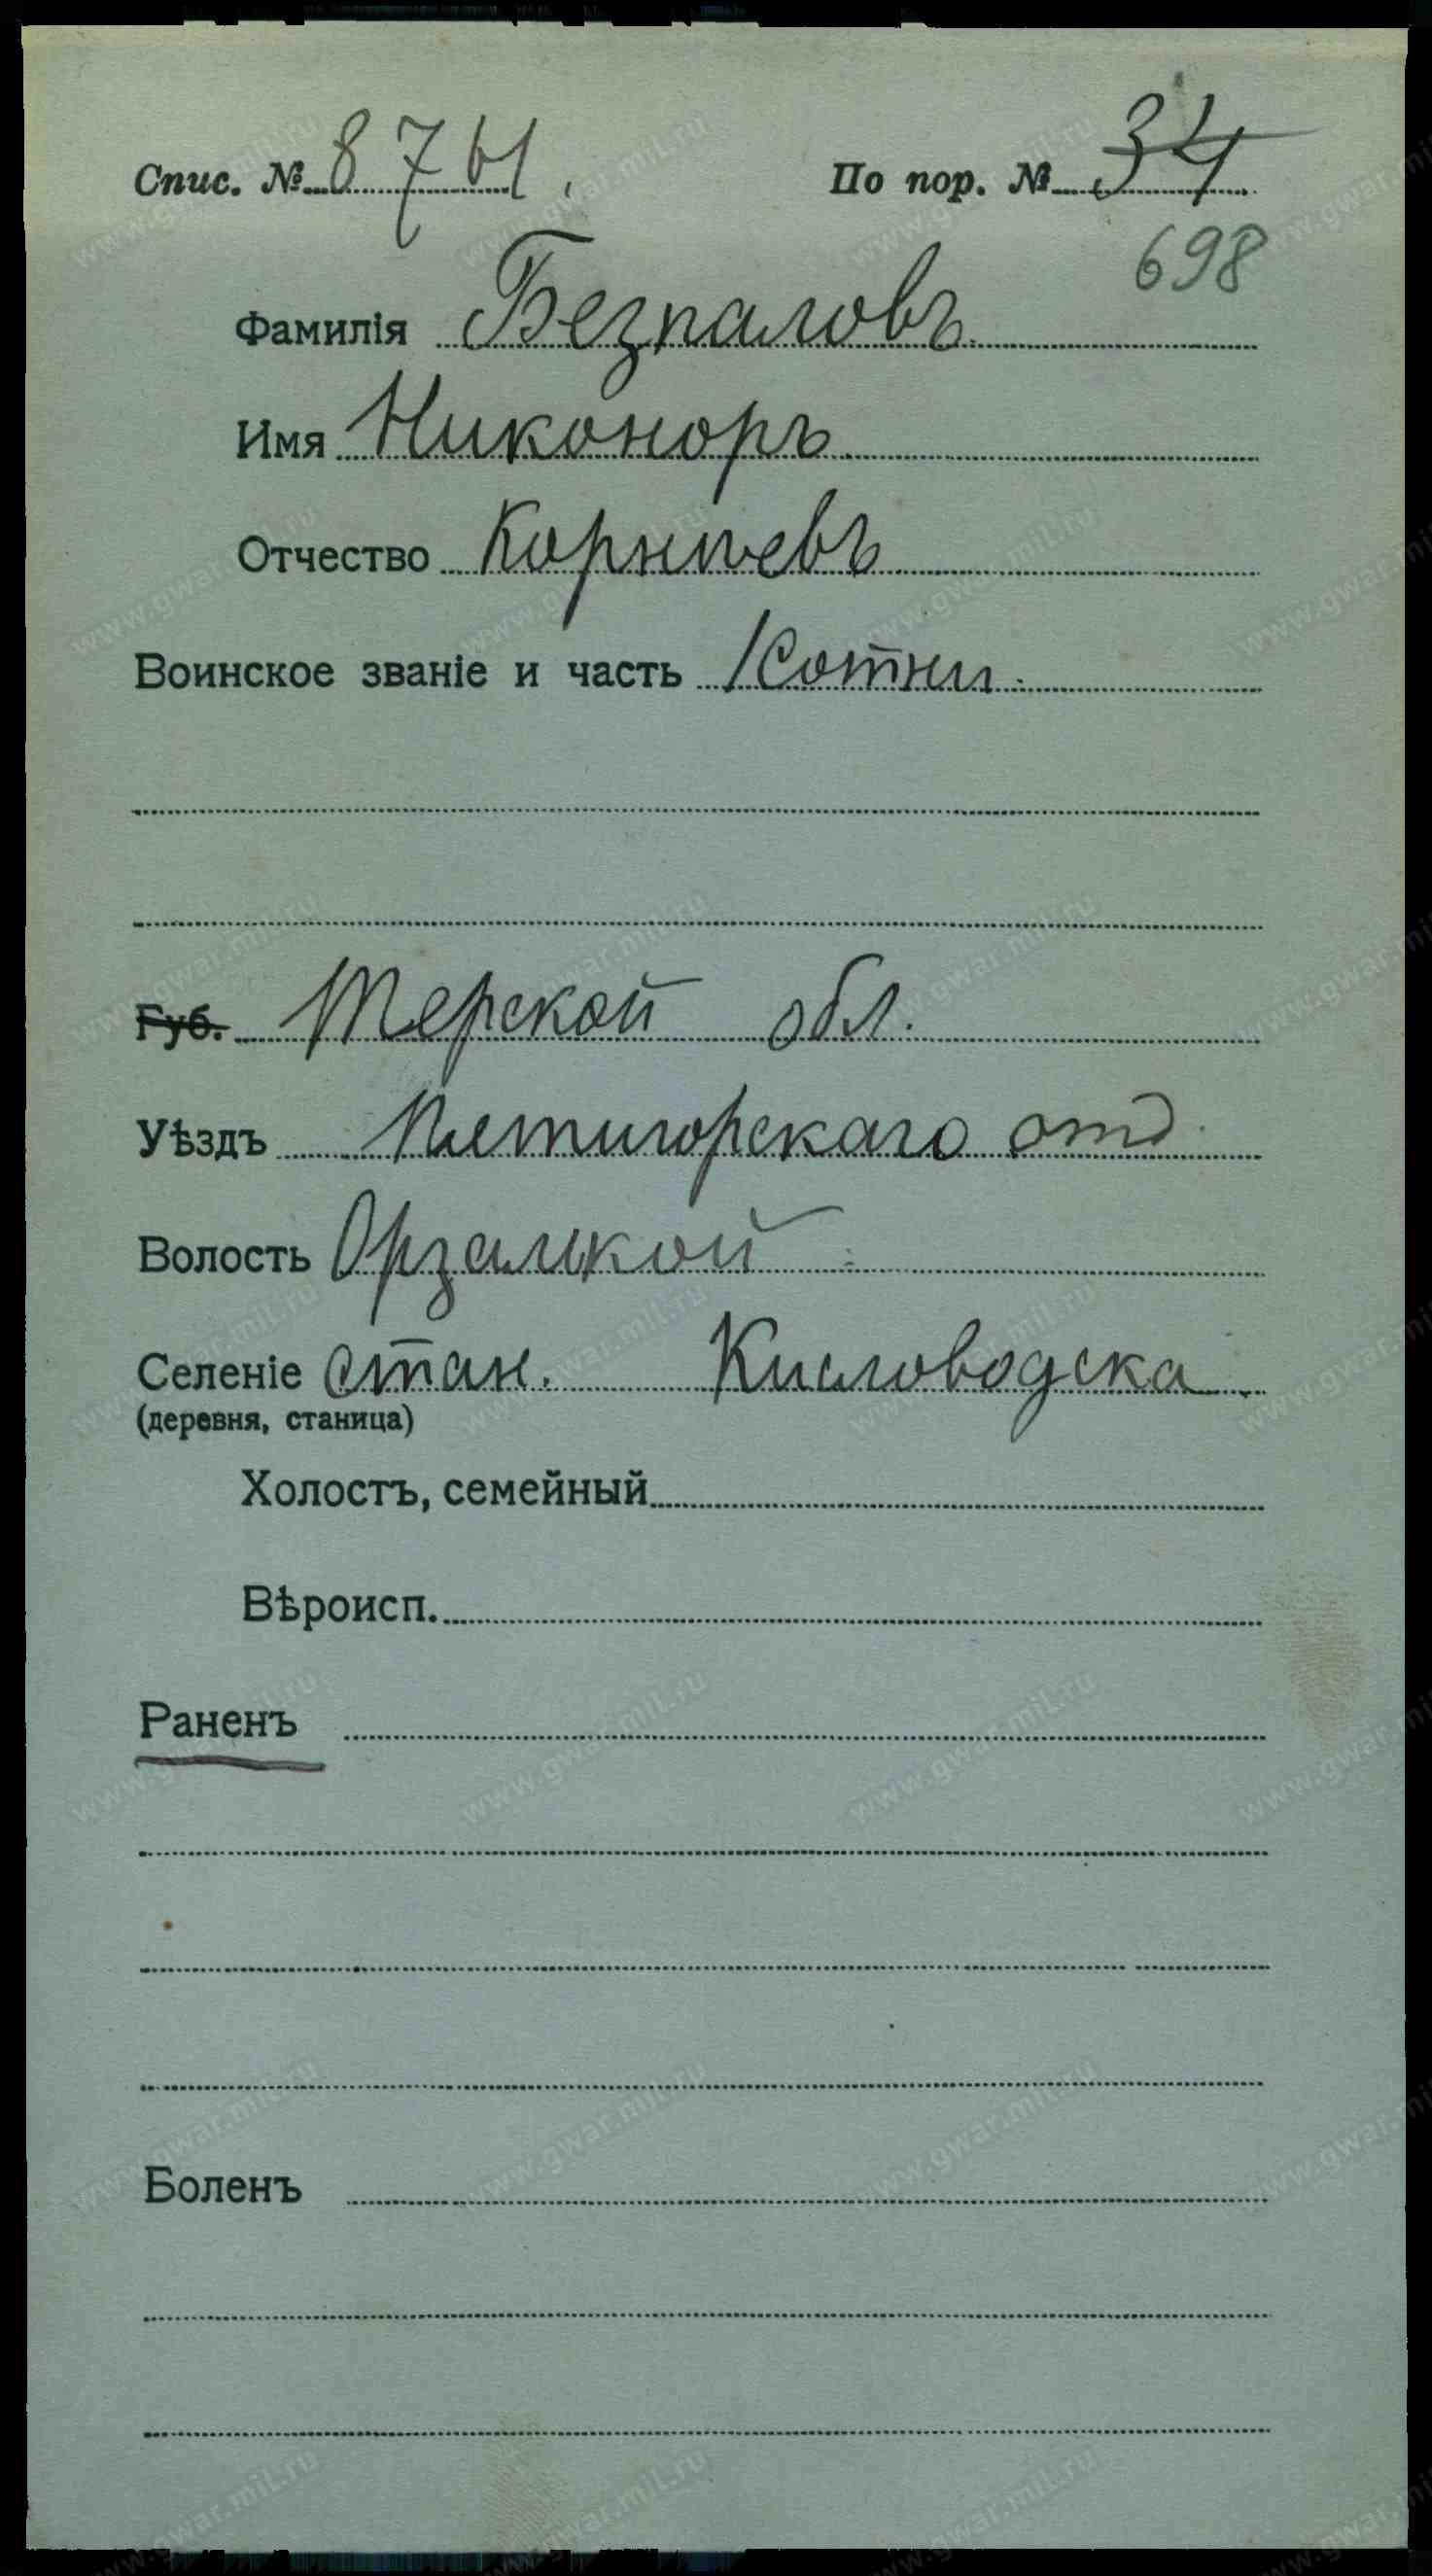 Спис. № 8761. По пор. № 34
698
Фамилія Безпаловъ
Имя Никоноръ
Отчество Корнѣевъ
Воинское званіе и часть 1 Сотни.
Губ. Терской обл.
Уѣздъ Пятигорскаго отд.
Волость
Селеніе стан. Кисловодска
(деревня, станица)
Холостъ, семейный
Вѣроисп.
Раненъ
Боленъ